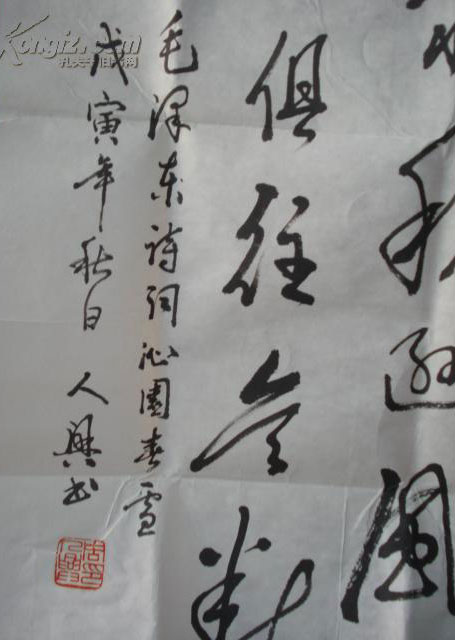 稍逊風
俱往矣数
毛泽东诗词沁園春雪
戊寅年秋日 人興书
孔夫子旧书网